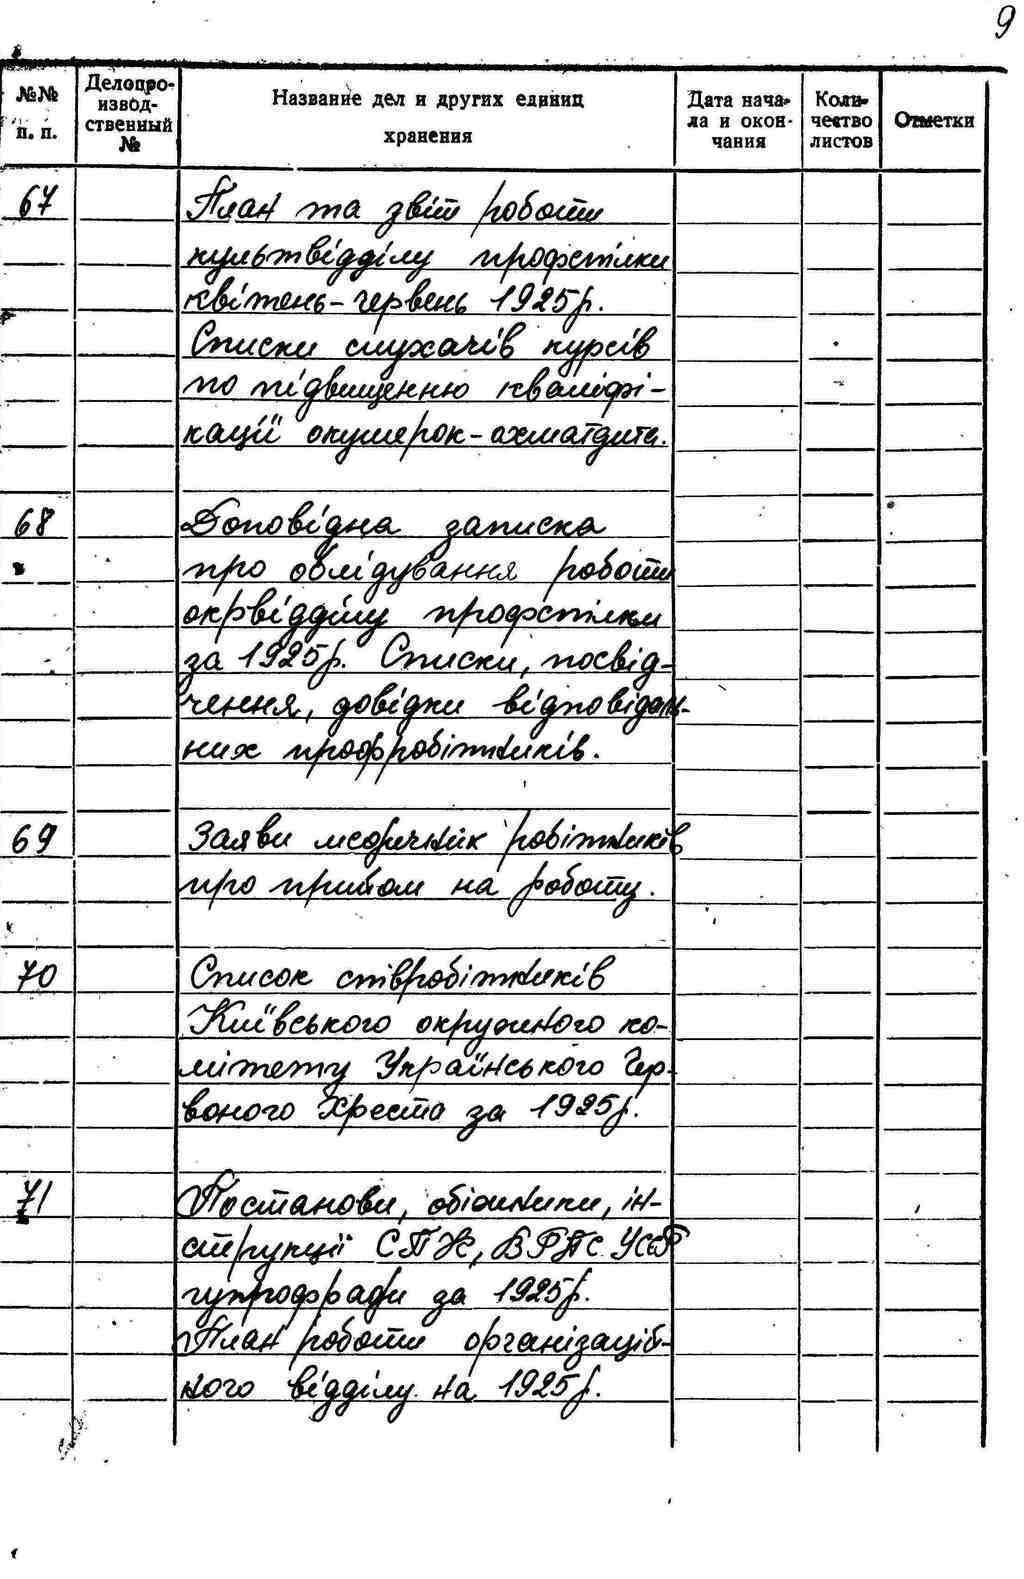 9
№№ п. п.
Делопро-
извод-
ственный
№
Название дел и других единиц
хранения
Дата нача-
ла и окон-
чания
Коли-
чество
листов
Отметки
67 План та звіт роботи
культвідділу профспілки
квітень-червень 1925р.
Списки слухачів курсів
по підвищенню кваліфі-
кації окушерок-охматдита.
68 Доповідна записка
про облідування роботи
окрвідділу профспілки
за 1925р. Списки, посвід-
чення, довідки відповідаль-
них профробітників.
69 Заяви медичник робітників
про прийом на роботу.
70 Список співробітників
Київського окружного ко-
мітету Українського Чер-
воного Хреста за 1925р.
71 Постанови, обіжники, ін-
струкції СТК, ВРПС. УССР
губпрофради за 1925р.
План роботи організацій-
ного відділу на 1925р.